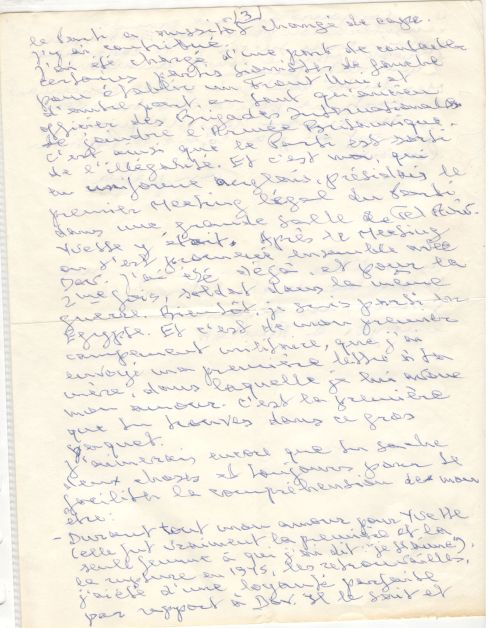 3
le Parti a aussitôt changé de cape.
J'y ai contribué.
J'ai été chargé d'une part de contacter
certains partis sionistes de gauche
pour établir un Front Uni et
d'autre part, en tant qu'ancien
officier des Brigades Internationales
de joindre l'Armée Britannique.
C'est ainsi que le Parti est sorti
de l'illégalité. Et c'est moi, qui
en uniforme anglais, présidais le
premier Meeting légal du Parti
dans une grande salle de Tel Aviv.
Yvette y était. Après le Meeting
on s'est promené ensemble avec
Dov. J'ai été déjà, et pour la
2me fois, soldat dans la même
guerre. Bientôt je suis parti en
Egypte. Et c'est de mon premier
campement militaire, que j'ai
envoyé ma première lettre à ta
mère, dans laquelle je lui avoue
mon amour. C'est la première
que tu trouves dans ce gros
paquet.
J'aimerais encore que tu saches
deux choses et toujours pour te
faciliter la compréhension de mon
être:
- Durant tout mon amour pour Yvette
(elle fut vraiment la première et la
seule femme à qui j'ai dit "je t'aime"),
la rupture en 1945, les retrouvailles,
j'ai été d'une loyauté parfaite
par rapport à Dov. Il le sait et